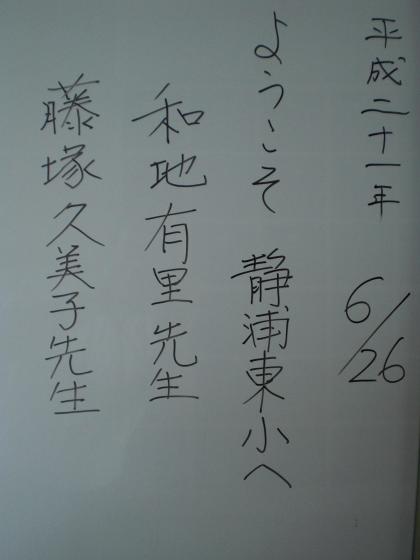 平成二十一年 6/26
ようこそ 静浦東小へ
和地有里先生
藤塚久美子先生